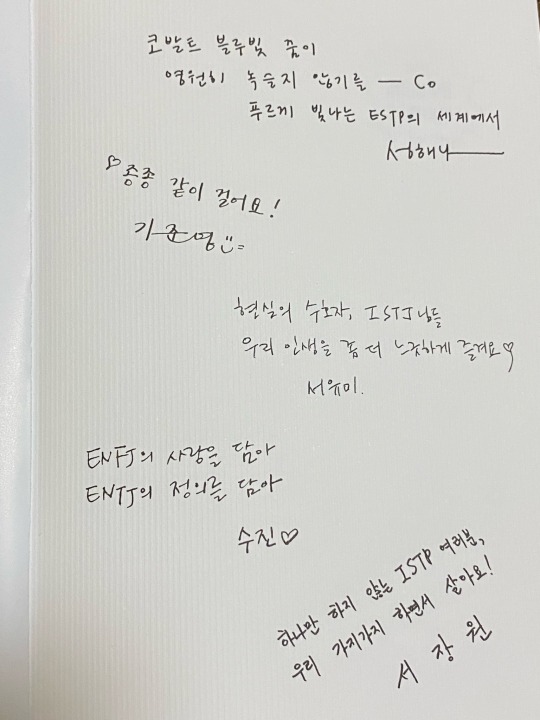 코발트 블루빛 꿈이
영원히 녹슬지 않기를 — Co
푸르게 빛나는 ESTP의 세계에서
성해나
♡종종 같이 걸어요!
기준영
현실의 수호자, ISTJ님들
우리 인생을 좀 더 느긋하게 즐겨요♡
서유미.
ENFJ의 사랑을 담아
ENTJ의 정의를 담아
수진♡
하나만 하지 않는 ISTP 여러분,
우리 가지가지 하면서 살아요!
서장원